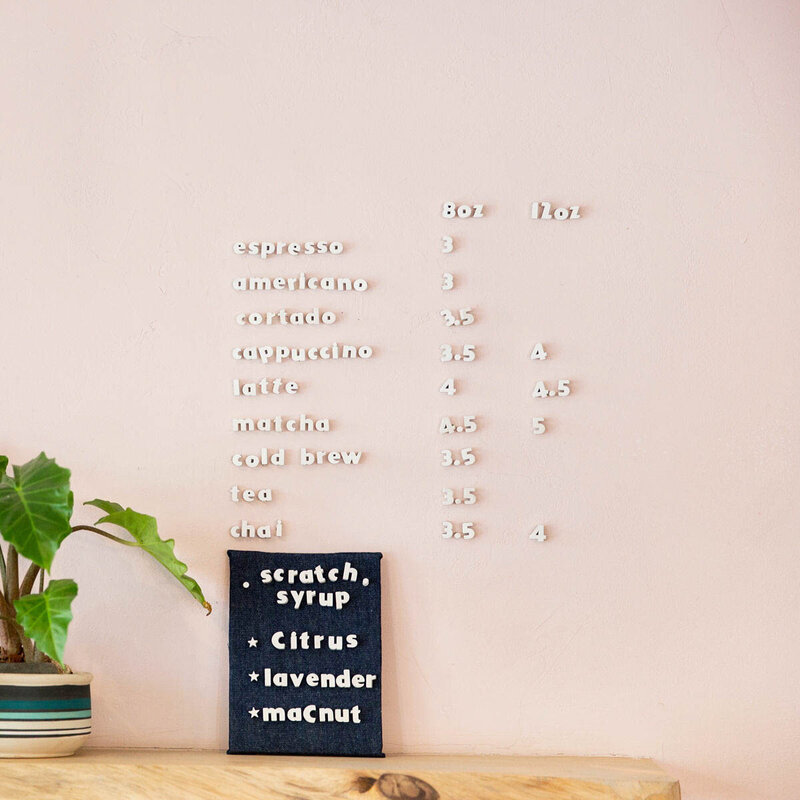 8oz 12oz
espresso 3
americano 3
cortado 3.5
cappuccino 3.5 4
latte 4 4.5
matcha 4.5 5
cold brew 3.5
tea 3.5
chai 3.5 4
. scratch.
syrup
★ Citrus
★ lavender
★ maCnut